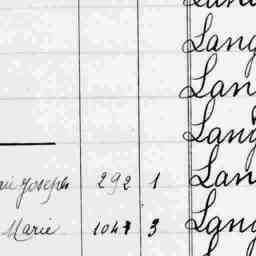 Lang
Lan
Lang
Joseph 292 1 Lan
Marie 1047 3 Lang